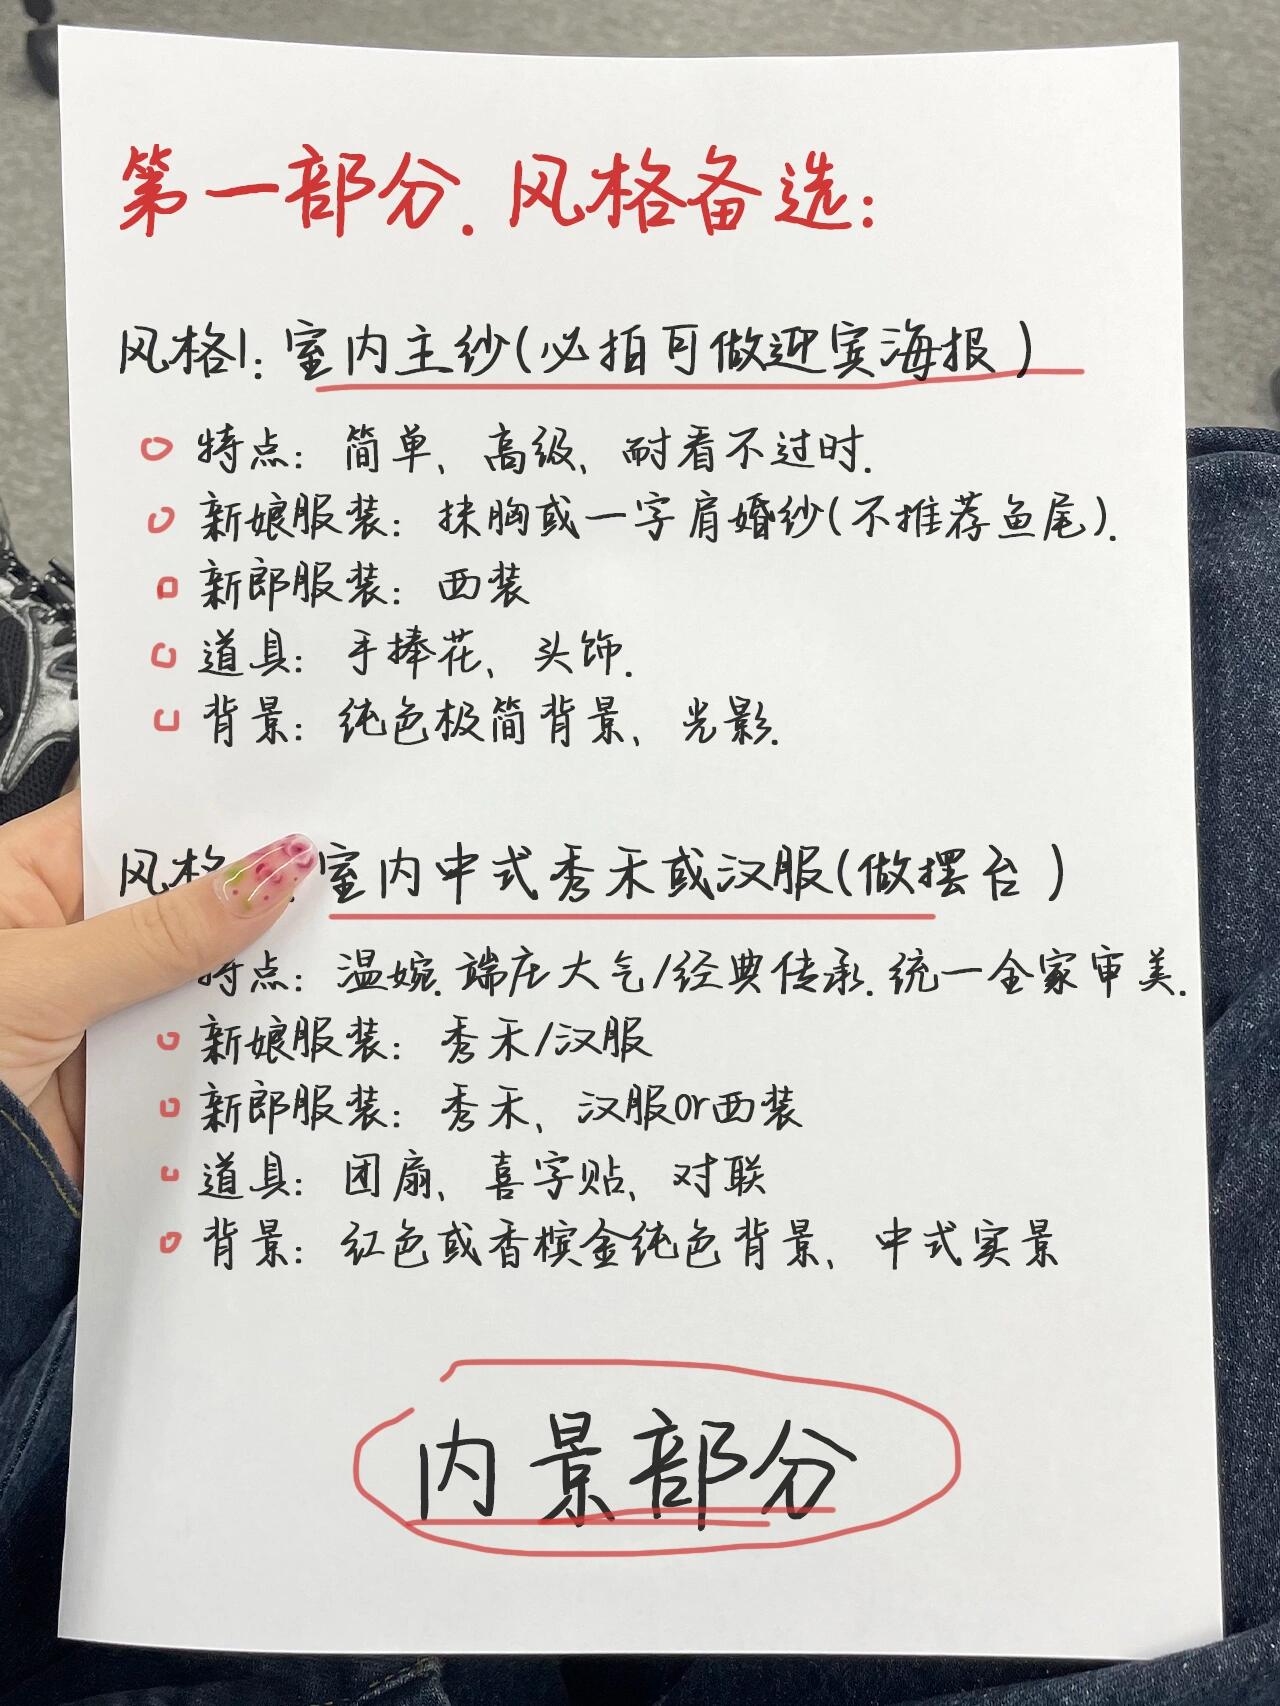 第一部分.风格备选:
风格1: 室内主纱(必拍可做迎宾海报)
特点: 简单、高级、耐看不过时.
新娘服装: 抹胸或一字肩婚纱(不推荐鱼尾).
新郎服装: 西装
道具: 手捧花、头饰.
背景: 纯色极简背景、光影.
风格 室内中式秀禾或汉服(做摆台)
特点: 温婉.端庄大气/经典传承.统一全家审美.
新娘服装: 秀禾/汉服
新郎服装: 秀禾、汉服or西装
道具: 团扇、喜字贴、对联
背景: 红色或香槟金纯色背景、中式实景
内景部分